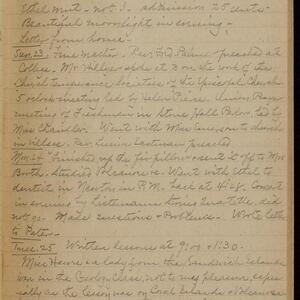 Ethel went - not I - admission 25 cents -
Beautiful moonlight in evening -
Letter from home -
Sun. 23. Fine weather. Rev. F. D. Palmer preached at
College. Mr. spoke at 3 on the work of the
Church Temperance Societies of the Episcopal Church
5 o'clock meeting led by Helen Pierce. Union Prayer
meeting of Freshmen in Stone Hall Parlor, led by
Miss Chandler. Went with Miss Emerson to church
in village. Rev. preached
Mon. 24. Finished up the fir pillow & sent it off to Mrs
Broth. Studied Volcanoes. Went with Ethel to
dentist in Newton in P.M. Back at 4:48. Concert
in evening by Listemann String Quartette, did
not go. Made questions & Problems. Wrote Letter
to Pater.
Tues. 25 Written lessons at 9:00 & 11:30.
Miss Hawes a lady from the Sandwich Islands
was in the Geology Class, not to my pleasure, espec-
ially as the lesson was on Coral Islands & Volcanoes